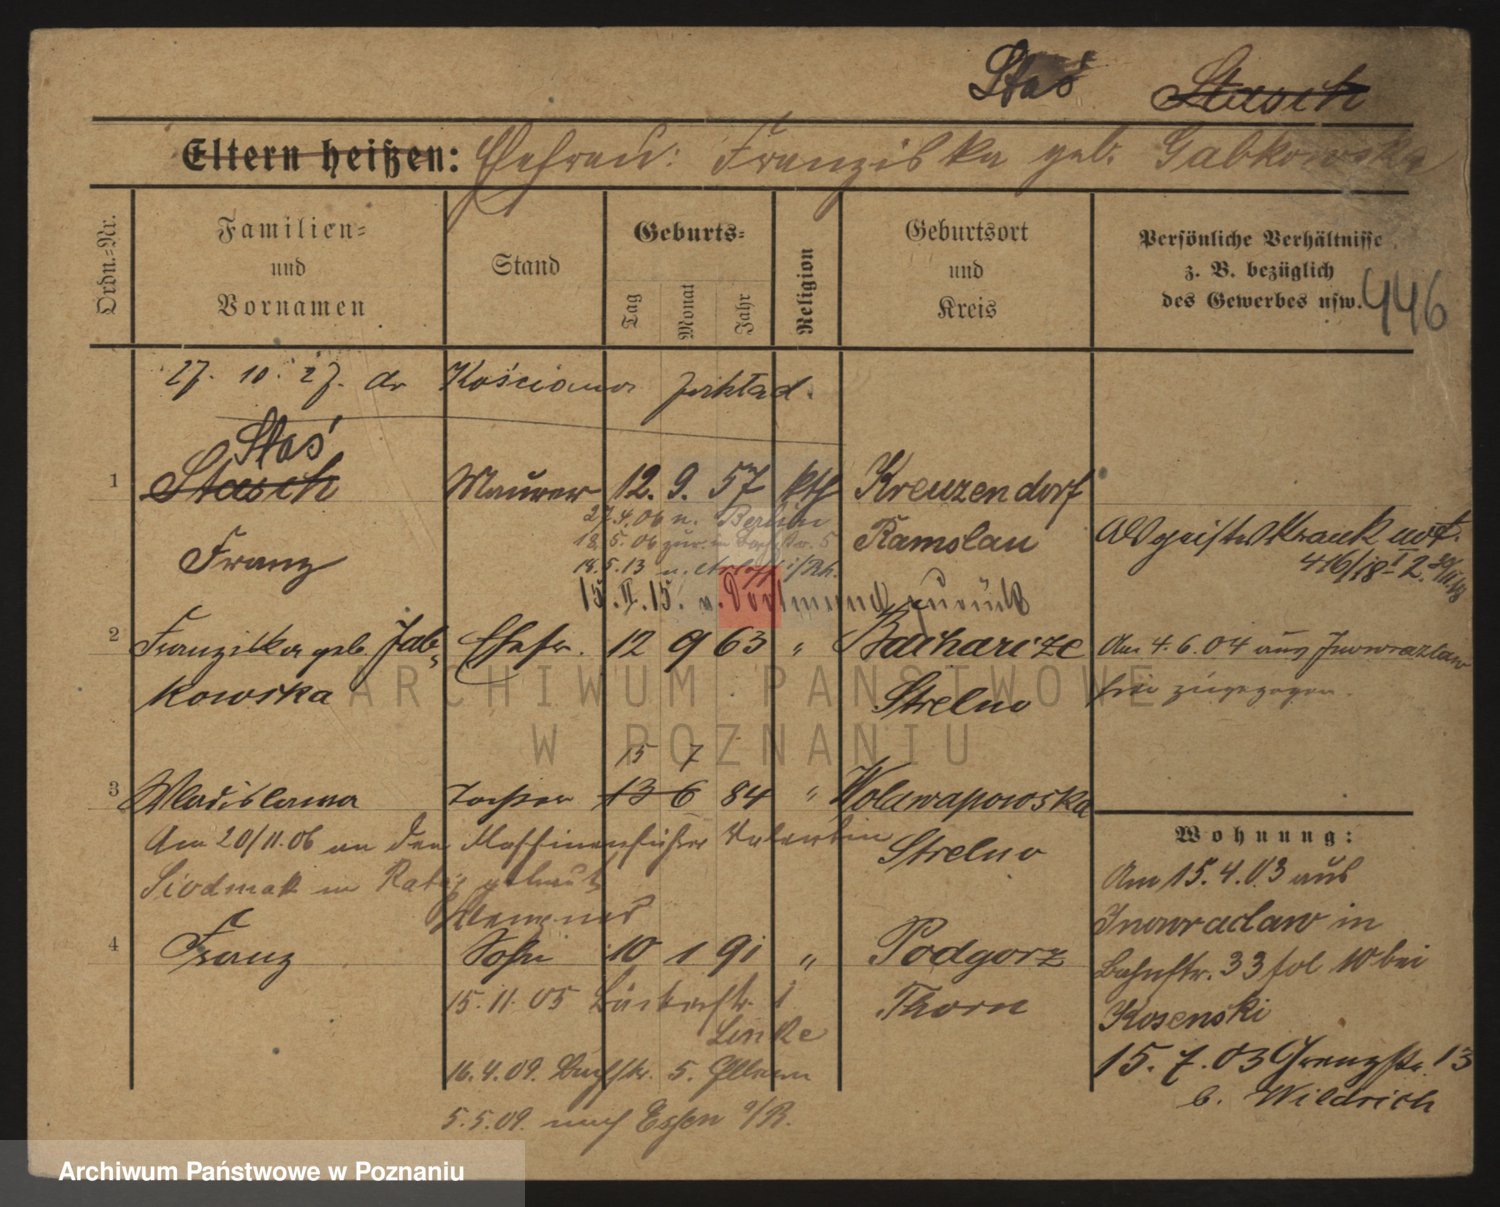 Staś Stasch
Eltern heißen: Ehefrau: Franziska geb. Gabkowska
Ordn.-Nr.
Familien-
und
Vornamen
Stand
Geburts-
Tag
Monat
Jahr
Religion
Geburtsort
und
Kreis
Persönliche Verhältnisse
z. B. bezüglich
des Gewerbes usw.
446
27. 10. 27. do Kościana
Staś
1 Stasch Maurer 12. 9. 57 kth Kreuzendorf
27.4.06 n. Berlin
Franz
18.5.06
Ramslau
18.5.13 n.
15.II.15. v. Dortmund zurück
Als geisteskrank
416/18
2 Franziska geb. Jab- Ehefr. 12 9 63 "
kowska
Strelno
Am 4.6.04 aus Inowrazlaw
hier zugezogen.
15 7
3 Wladislawa Tochter 13 6 84 " Wolawapowska
Strelno
Am 20/11.06 an den Maschinenführer Valentin
Siodmak in
4 Franz Sohn 10 1 91 " Podgorz
Thorn
15.11.05 Bäckerstr. 1
Linke
16.4.09. 5.
5.5.09. nach Essen a/R.
Wohnung:
Am 15.4.03 aus
Inowradaw in
Bahnstr. 33 fol 10 bei
Kosenski
15.7.03 Grenzstr. 13
b. Wildrich
ARCHIWUM PAŃSTWOWE
W POZNANIU
Archiwum Państwowe w Poznaniu